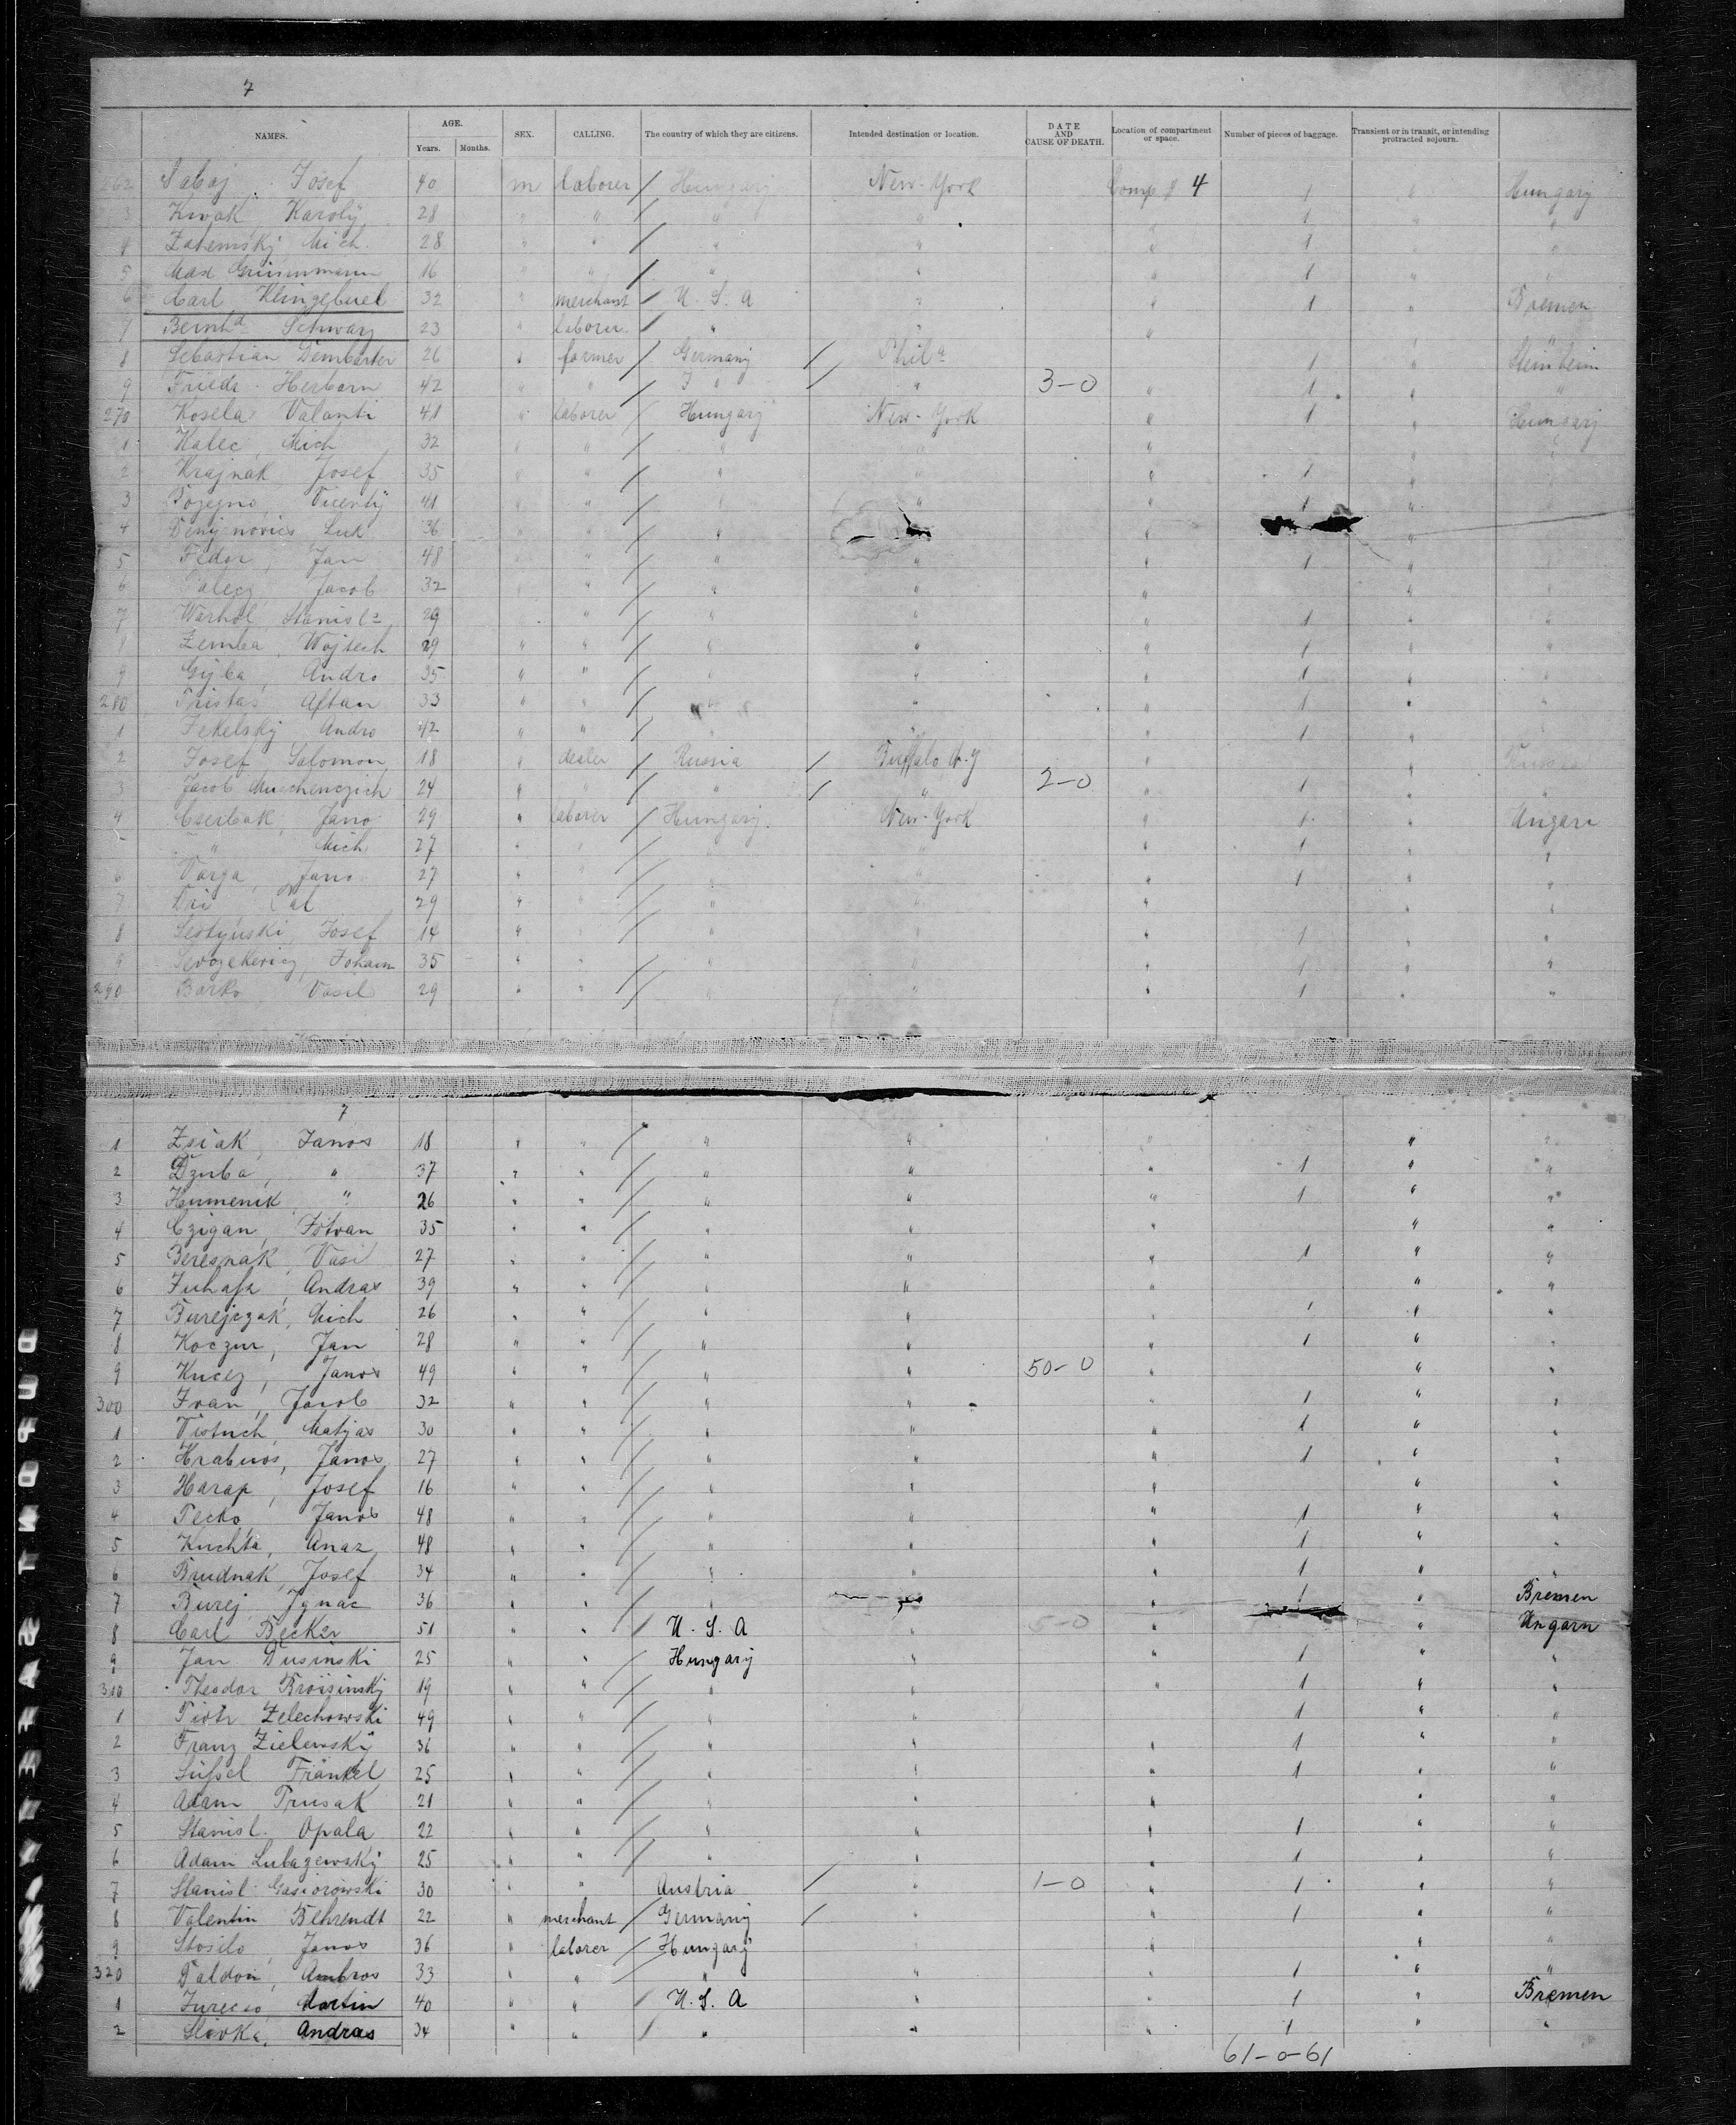 7
NAMES. AGE. Years. Months. SEX. CALLING. The country of which they are citizens. Intended destination or location. DATE AND CAUSE OF DEATH. Location of compartment or space. Number of pieces of baggage. Transient or in transit, or intending protracted sojourn.
262 Sabaj Josef 40 m laborer / Hungary New-York Comp # 4 1 " Hungary
3 Kwak Karoly 28 " " / " " " 1 " "
4 Zatemsky, Mich. 28 " " / " " " 1 " "
5 Max Grünnmann 16 " " / " " " 1 " "
6 Carl Klingebuel 32 " merchant / U. S. A " " 1 " Bremen
7 Bernhd Schwarz 23 " laborer / " " " " "
8 Sebastian Dembarter 26 " farmer / Germany / Phila " 1 " Steinheim
9 Friedr. Herborn 42 " " / " / " 3-0 " 1 " "
270 Kosela Valanti 41 " laborer / Hungary New-York " 1 " Hungary
1 Kalec, Mich 32 " " / " " " " "
2 Krajnak, Josef 35 " " / " " " 1 " "
3 41 " " / " " " 1 " "
4 Luk 36 " " / " " " "
5 Fedor, Jan 48 " " / " " " 1 " "
6 Jacob 32 " " / " " " " "
7 Warhol, Stanisl 29 " " / " " " 1 " "
8 Zemba, Wojtech 29 " " / " " " 1 " "
9 Gyba, Andro 35 " " / " " " 1 " "
280 Tristas Aftan 33 " " / " " " 1 " "
1 Fekelsky Andro 42 " " / " " " 1 " "
2 Josef Salomon 18 " dealer / Russia / Buffalo N.Y " " Russia
3 Jacob Muschenczich 24 " " / " / " 2-0 " 1 " "
4 Cserbak, Jano 29 " laborer / Hungary New-York " 1 " Ungarn
5 " Mich 27 " " / " " " 1 " "
6 Varga, Jano 27 " " / " " " 1 " "
7 Pal 29 " " / " " " " "
8 Sestynski, Josef 14 " " / " " " 1 " "
9 Johann 35 " " / " " " 1 " "
290 Barko Vasil 29 " " / " " " 1 " "
7
1 Zsiak, Janos 18 " " / " " " " "
2 Dzuba, " 37 " " / " " " 1 " "
3 Humenik, " 26 " " / " " " 1 " "
4 Czigan, Istvan 35 " " / " " " " "
5 Beresnak, Vasi 27 " " / " " " 1 " "
6 Juhasz, Andras 39 " " / " " " " "
7 Burejczak, Mich 26 " " / " " 1 " "
8 Koczur, Jan 28 " " / " " " 1 " "
9 Kucez, Janos 49 " " / " " 50-0 " " "
300 Ivan, Jacob 32 " " / " " " 1 " "
1 Vistuch, Matyas 30 " " / " " " 1 " "
2 Hrabuos, Janos 27 " " / " " " 1 " "
3 Harap, Josef 16 " " / " " " " "
4 Tecko Janos 48 " " / " " " 1 " "
5 Kuchta, Anaz 48 " " / " " " 1 " "
6 Brudnak, Josef 34 " " / " " " 1 " "
7 Burej Ignac 36 " " / " " 1 " Bremen
8 Carl Becker 51 " " / U. S. A " 5-0 " " Ungarn
9 Jan Dusinski 25 " " / Hungary " " 1 " "
310 Theodor Broisinsky 19 " " / " " " 1 " "
1 Piotr Zelechowski 49 " " / " " 1 " "
2 Franz Zielewski 36 " " / " " " 1 " "
3 Süssel Fränkel 25 " " / " " " 1 " "
4 Adam Trusak 21 " " / " " " " "
5 Stanisl. Opala 22 " " / " " " 1 " "
6 Adam Lubazewsky 25 " " / " " " 1 " "
7 Stanisl. Gasiorowski 30 " " / Austria / " 1-0 " 1 " "
8 Valentin Behrendt 22 " merchant / Germany / " " 1 " "
9 Stosilo, Janos 36 " laborer / Hungary " " " "
320 Paldon, Ambros 33 " " / " " " 1 " "
1 Jurecso, Martin 40 " " / U. S. A " " 1 " Bremen
2 Slivka, Andras 34 " " / " " " 1 " "
61-0-61